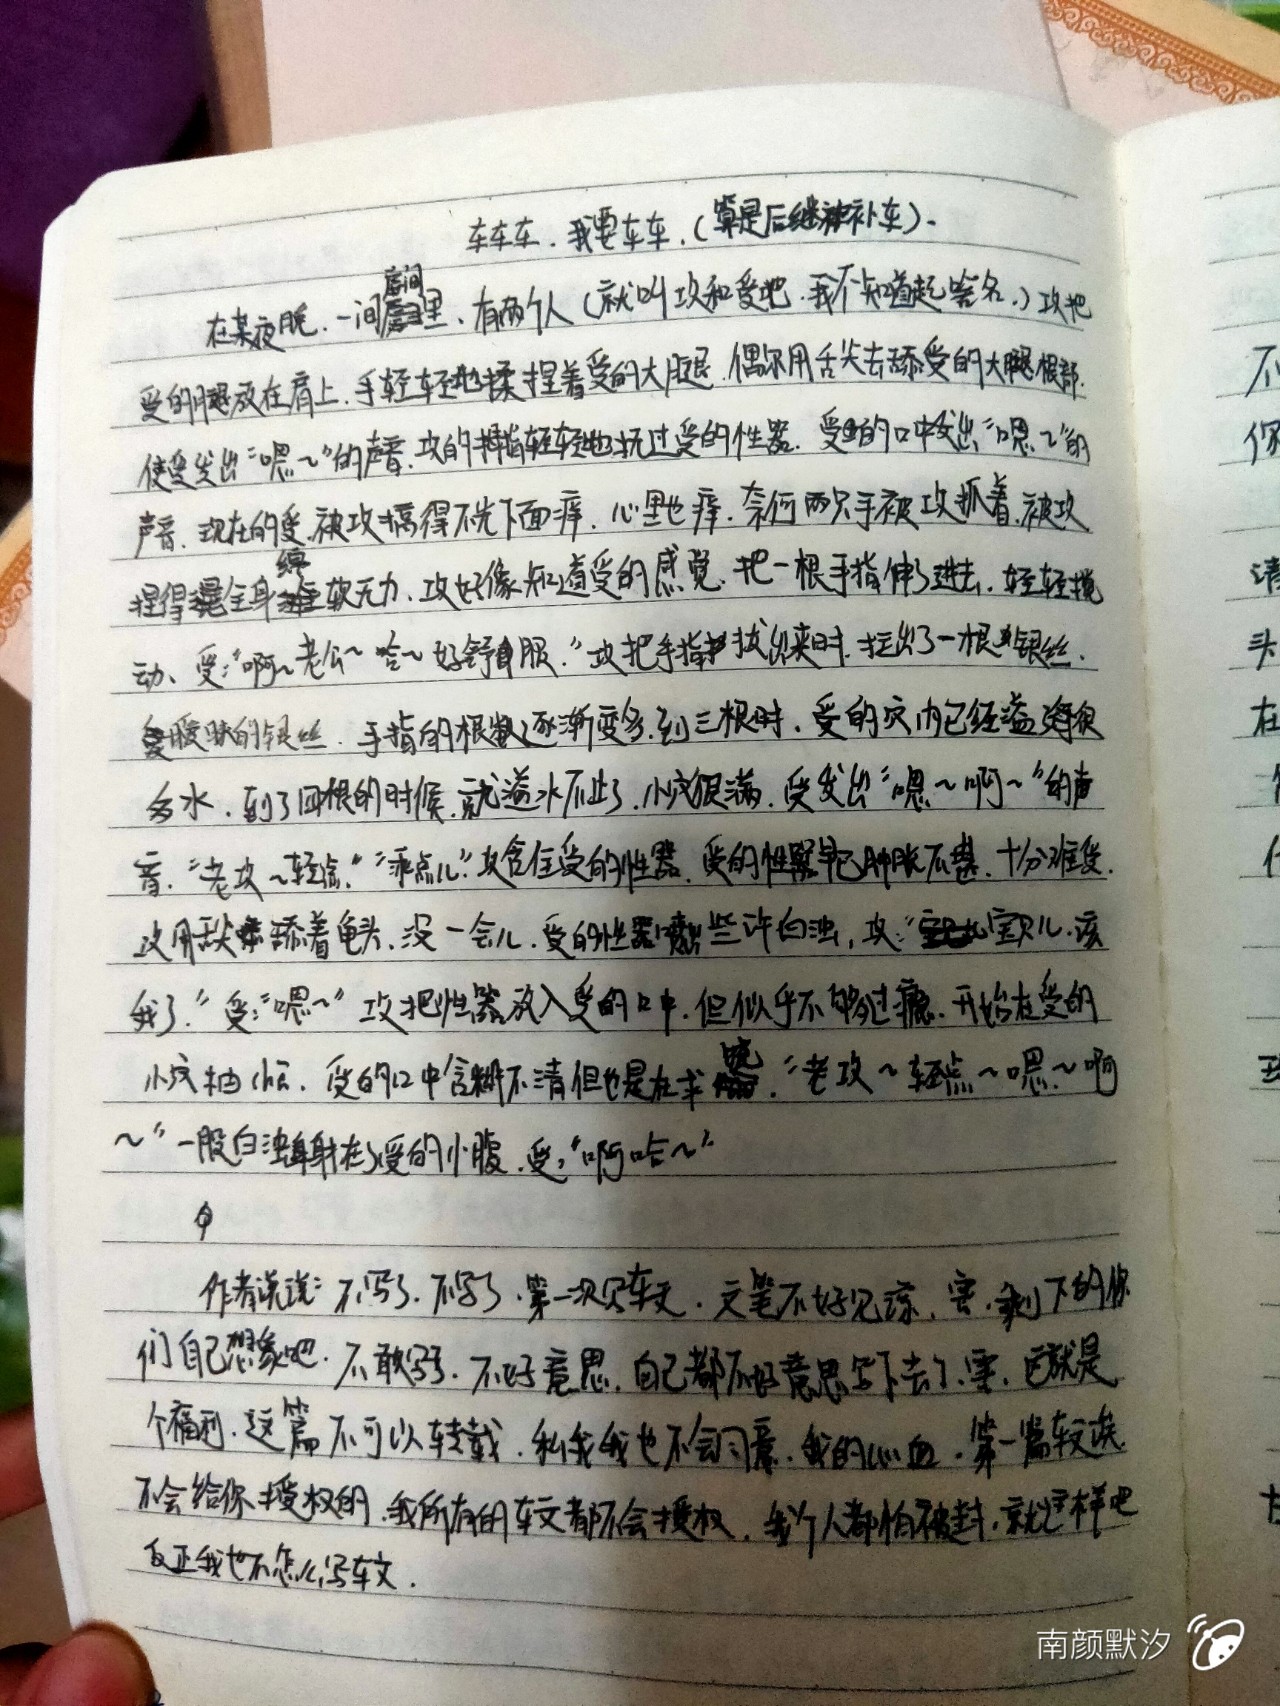 车车车，我要车车，（算是后继神补车）。
在某夜晚，一间房间里，有两个人（就叫攻和受吧，我不知道起啥名，）攻把
受的腿放在肩上，手轻轻地揉捏着受的大腿，偶尔用舌尖去舔受的大腿根部，
使受发出“嗯～”的声音，攻的拇指轻轻地抚过受的性器，受的口中发出“嗯～”的
声音，现在的受，被攻搞得不光下面痒，心里也痒，奈何两只手被攻抓着，被攻
捏得全身绵软无力，攻好像知道受的感觉，把一根手指伸了进去，轻轻搅
动、受：“啊～老公～哈～好舒服，”攻把手指拔出来时，拉出了一根银丝，
暧昧的银丝，手指的根数逐渐变多，到三根时，受的穴内已经溢很
多水，到了四根的时候，就溢水不止了，小穴很满，受发出“嗯～啊～”的声
音，“老攻～轻点，”“乖点儿”攻含住受的性器，受的性器早已肿胀不堪，十分难受，
攻用舌尖舔着龟头，没一会儿，受的性器些许白浊，攻：“宝贝儿，该
我了”受：“嗯～”攻把性器放入受的口中，但似乎不够过瘾，开始在受的
小穴抽，受的口中含糊不清但也是在求饶，“老攻～轻点～嗯～啊
～”一股白浊射在受的小腹，受：“啊哈～”
作者说说：不写了，不写了，第一次写车文，文笔不好见谅，害，剩下的你
们自己想象吧，不敢写了，不好意思，自己都不好意思写下去了，害，这就是
个福利，这篇不可以转载，私我我也不会同意，我的心血，第一篇车文诶，
不会给你授权的，我所有的车文都不会授权，我个人都怕被封，就这样吧
反正我也不怎么写车文．
南颜默汐